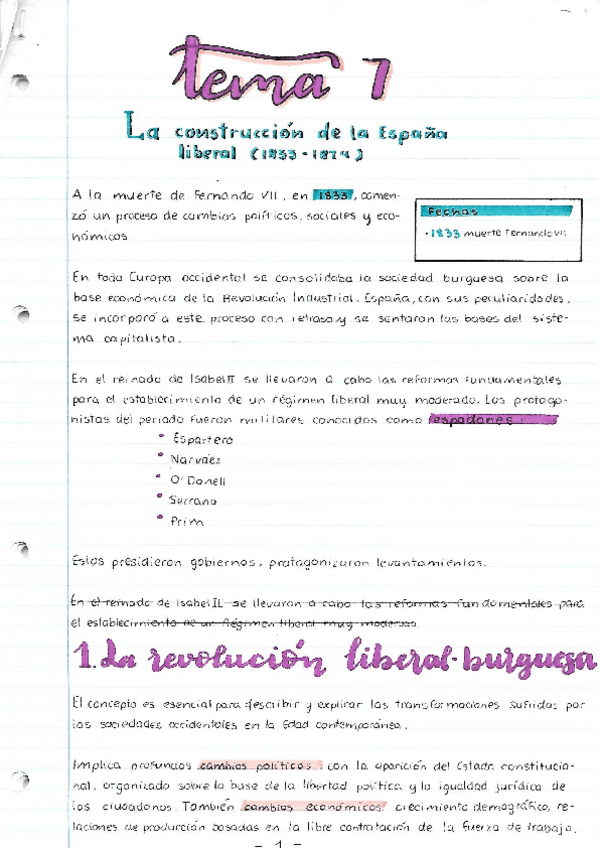 tema 7
La construcción de la España
liberal (1833-1874)
A la muerte de Fernando VII, en 1833, comen-
zó un proceso de cambios políticos, sociales y eco-
nómicos
Fechas
· 1833 muerte Fernando VII
En toda Europa occidental se consolidaba la sociedad burguesa sobre la
base económica de la Revolución Industrial. España, con sus peculiaridades,
se incorporó a este proceso con retraso y se sentaron las bases del siste-
ma capitalista.
En el reinado de Isabel II se llevaron a cabo las reformas fundamentales
para el establecimiento de un régimen liberal muy moderado. Los protago-
nistas del periodo fueron militares conocidos como espadones.
• Espartero
• Narváez
• O'Donell
• Serrano
• Prim
Estos presidieron gobiernos, protagonizaron levantamientos.
En el reinado de Isabel II se llevaron a cabo las reformas fundamentales para
el establecimiento de un Régimen liberal muy moderado.
1. La revolución liberal-burguesa
El concepto es esencial para describir y explicar las transformaciones sufridas por
las sociedades occidentales en la Edad contemporánea.
Implica profundos cambios políticos, con la aparición del Estado constitucio-
nal, organizado sobre la base de la libertad política y la igualdad jurídica de
los ciudadanos. También cambios económicos crecimiento demográfico, re-
laciones de producción basadas en la libre contratación de la fuerza de trabajo.
- 1 -